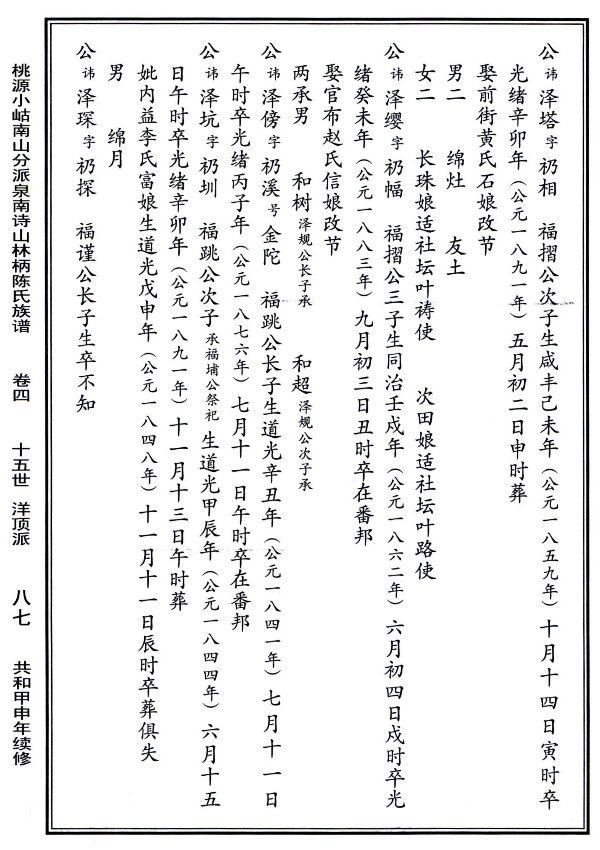 公讳泽塔字礽相　福摺公次子生咸丰己未年（公元一八五九年）十月十四日寅时卒
光绪辛卯年（公元一八九一年）五月初二日申时葬
娶前街黄氏石娘改节
男二　绵灶　友土
女二　长珠娘适社坛叶祷使　次田娘适社坛叶路使
公讳泽缨字礽幅　福摺公三子生同治壬戌年（公元一八六二年）六月初四日戌时卒光
绪癸未年（公元一八八三年）九月初三日丑时卒在番邦
娶官布赵氏信娘改节
两承男　和树泽规公长子承　和超泽规公次子承
公讳泽傍字礽溪号金陀　福跳公长子生道光辛丑年（公元一八四一年）七月十一日
午时卒光绪丙子年（公元一八七六年）七月十一日午时卒在番邦
公讳泽坑字礽圳　福跳公次子承福埔公祭祀生道光甲辰年（公元一八四四年）六月十五
日午时卒光绪辛卯年（公元一八九一年）十一月十三日午时葬
妣内益李氏富娘生道光戊申年（公元一八四八年）十一月十一日辰时卒葬俱失
男　绵月
公讳泽琛字礽探　福谨公长子生卒不知
桃源小岵南山分派泉南诗山林柄陈氏族谱　卷四　十五世　洋顶派　八七　共和甲申年续修